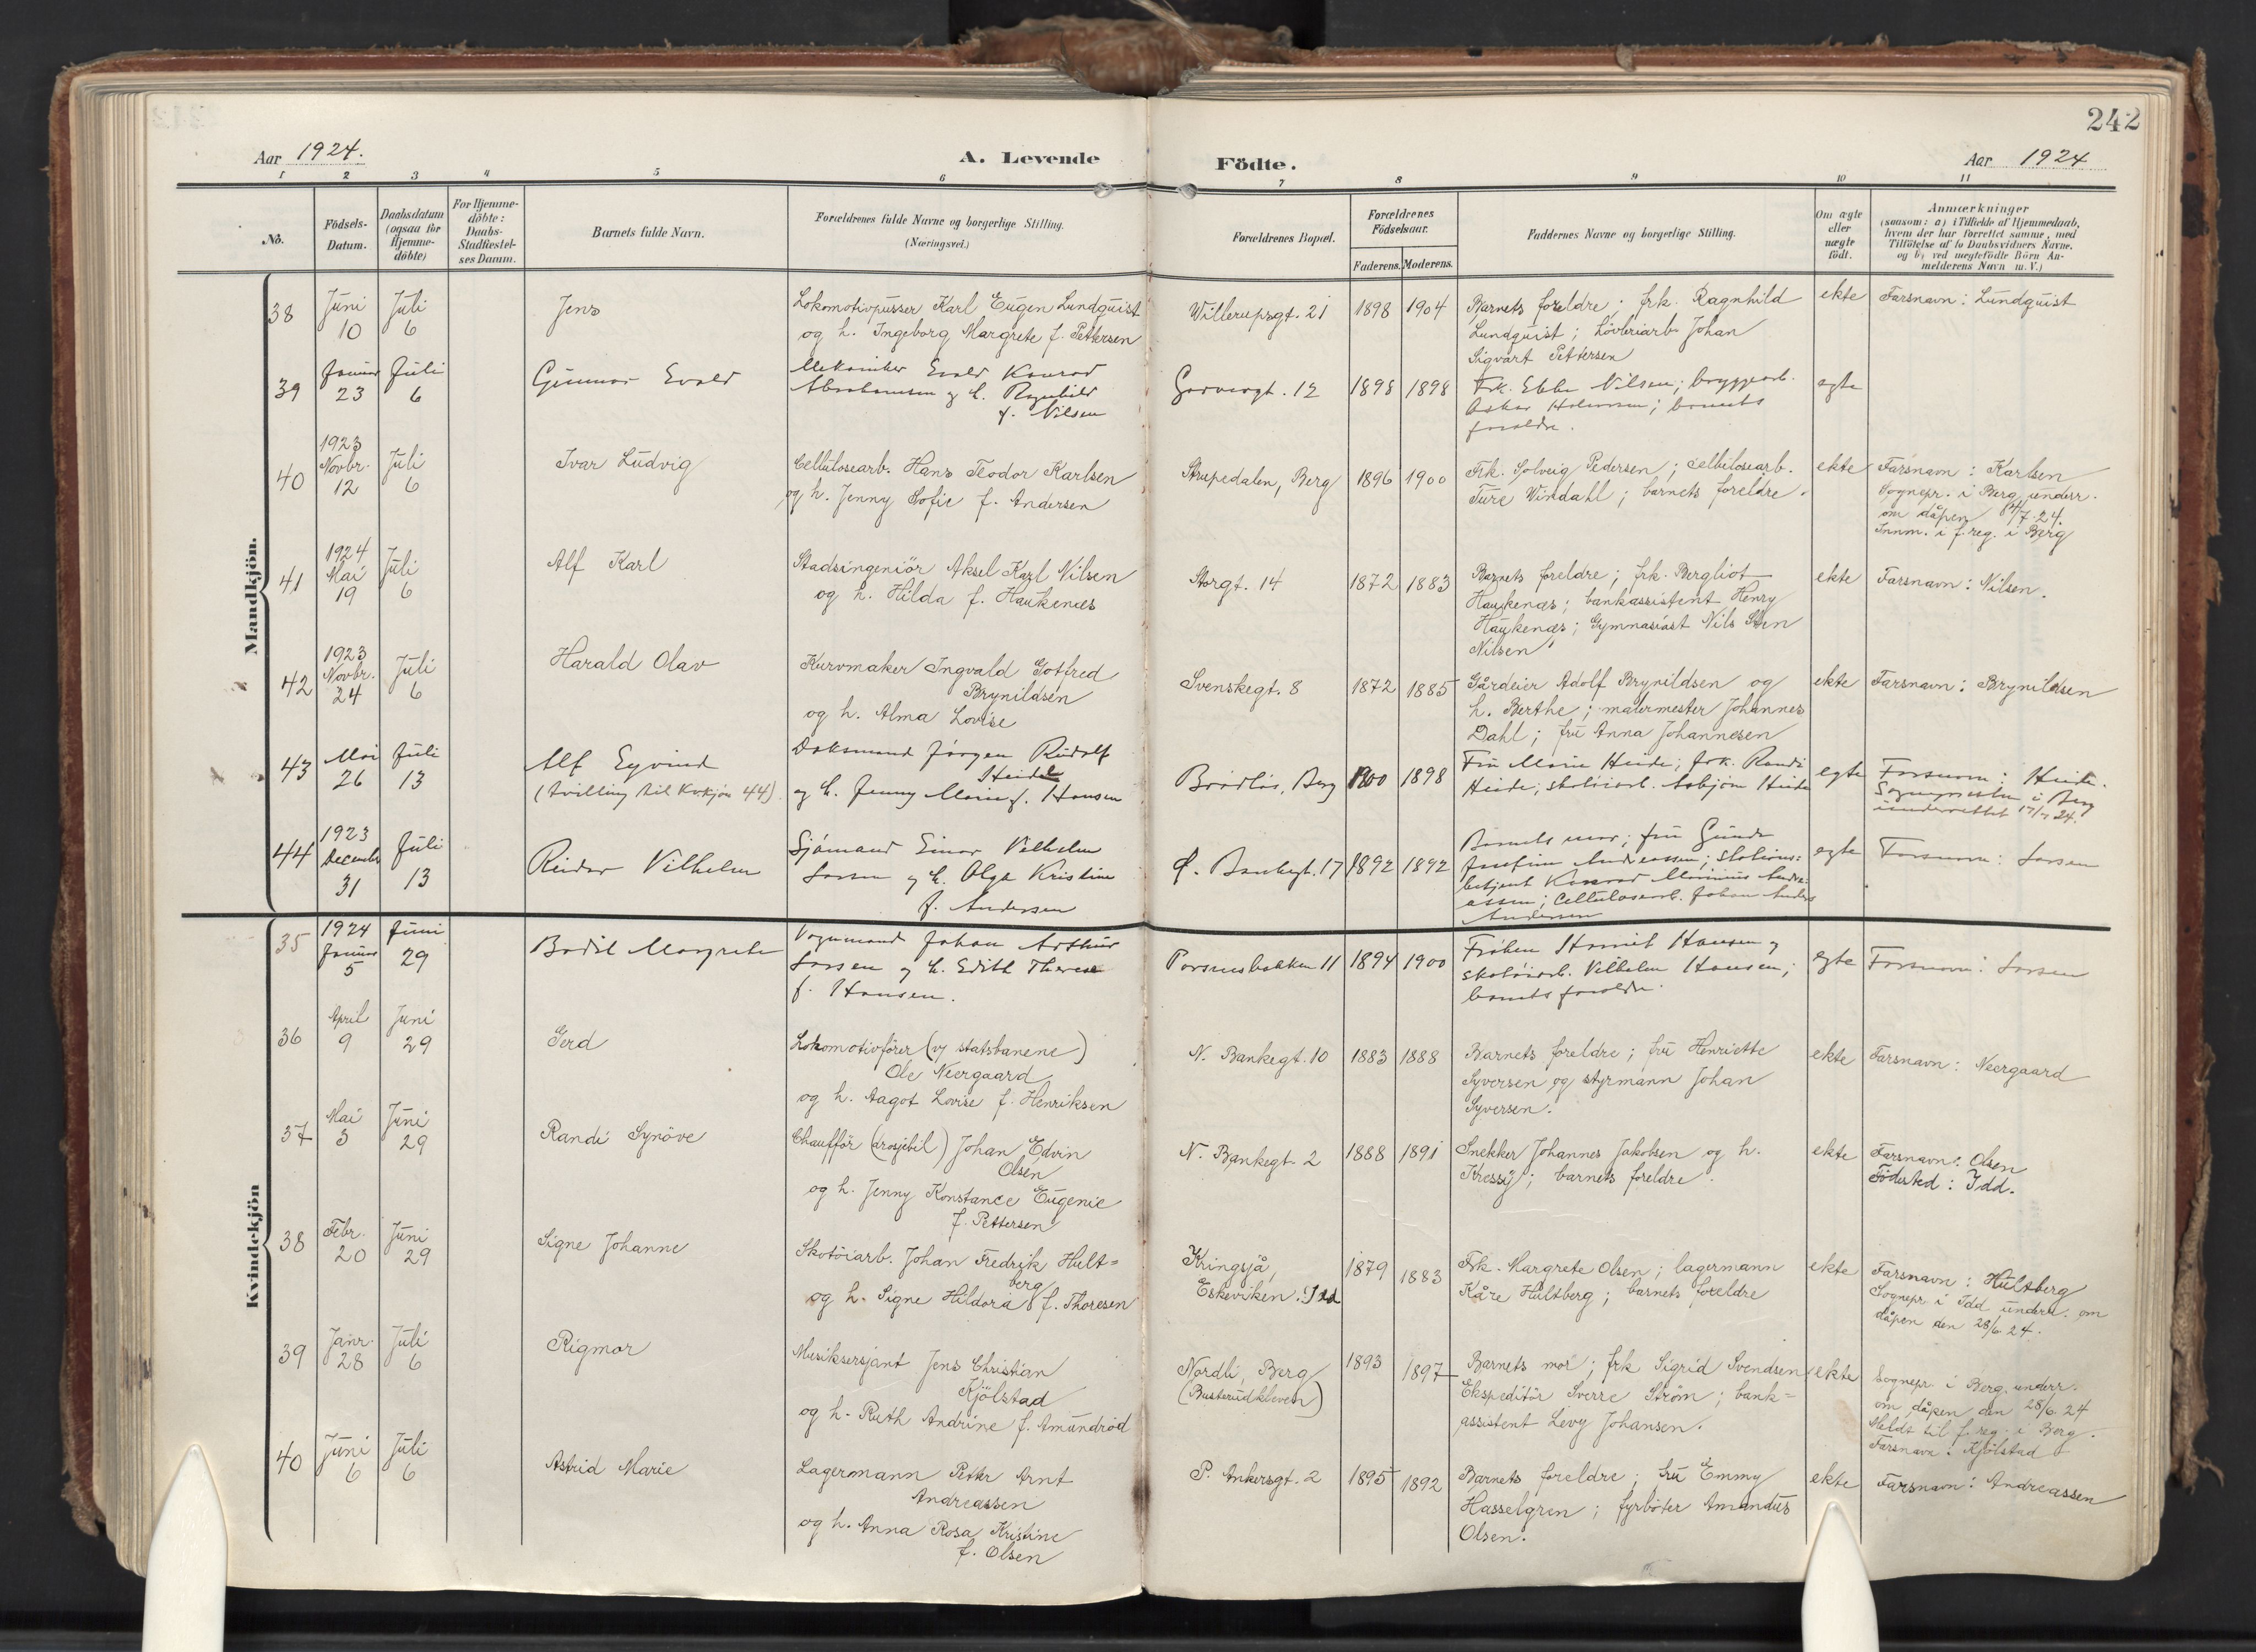 242
Aar 1924.
A. Levende
Födte.
Aar 1924
1 2 3 4 5 6 7 8 9 10 11
No.
Födsels-
Datum.
Daabsdatum
(ogsaa for
Hjemme-
döbte)
For Hjemme-
döbte:
Daabs-
Stadfæstel-
ses Datum.
Barnets fulde Navn.
Forældrenes fulde Navne og borgerlige Stilling.
(Næringsvei.)
Forældrenes Bopæl.
Forældrenes
Födselsaar.
Faderens. Moderens.
Faddernes Navne og borgerlige Stilling.
Om ægte
eller
uægte
födt.
Anmærkninger
(saasom: a) i Tilfælde af Hjemmedaab,
hvem der har forrettet samme, med
Tilföielse af to Daabsvidners Navne.
og b) ved uægtefödte Börn An-
melderens Navn m. V.)
Mandkjön.
38
Juni
10
Juli
6
Jens
Lokomotivpusser Karl Eugen Lundquist
og h. Ingeborg Margrete f. Pettersen
Willerupsgt. 21
1898
1904
Barnets foreldre; frk. Ragnhild
Lundquist; høvleriarb. Johan
Sigvart Pettersen
ekte
Farsnavn: Lundquist
39
Januar
23
Juli
6
Gunnar Evald
Mekaniker Evald Konrad
Abrahamsen og h. Ragnhild
f. Nilsen
Garvergt. 12
1898
1898
Frk. Ebba Nilsen; bryggearb.
Oskar Halvorsen; barnets
foreldre.
egte
40
1923
Novbr.
12
Juli
6
Ivar Ludvig
Cellulosearb. Hans Teodor Karlsen
og h. Jenny Sofie f. Andersen
Strupedalen, Berg
1896
1900
Frk. Solveig Pedersen; cellulosearb.
Ture Windahl; barnets foreldre.
ekte
Farsnavn: Karlsen
Sognepr. i Berg underr.
om dåpen 14/7.24.
Innm. i f. reg. i Berg
41
1924
Mai
19
Juli
6
Alf Karl
Stadsingeniör Aksel Karl Nilsen
og h. Hilda f. Haukenæs
Storgt. 14
1872
1883
Barnets foreldre; frk. Bergliot
Haukenæs; bankassistent Henry
Haukenæs; Gymnasiast Nils Sten
Nilsen
ekte
Farsnavn: Nilsen.
42
1923
Novbr.
24
Juli
6
Harald Olav
Kurvmaker Ingvald Gotfred
Brynildsen
og h. Alma Lovise
Svenskegt. 8
1872
1885
Gårdeier Adolf Brynildsen og
h. Berthe; malermester Johannes
Dahl; fru Anna Johannesen
ekte
Farsnavn: Brynildsen
43
Mai
26
Juli
13
Alf Eyvind
(tvilling til Kvkjøn 44)
Doksmand Jörgen Rudolf
Heide
og h. Jenny Marie f. Hansen
Brödlös, Berg
1900
1898
Fru Marie Heide; frk. Randi
Heide; skotöiarb. Asbjörn Heide
egte
Farsnavn: Heide.
Sognepresten i Berg
underrettet 17/7 24.
44
1923
December
31
Juli
13
Reidar Vilhelm
Sjömand Einar Vilhelm
Larsen og h. Olga Kristine
f. Andersen
Ø. Bankegt. 17
1892
1892
Barnets mor; fru Gunda
Josefine Andreassen; stations=
betjent Konrad Marinius Andre=
assen; Cellulosearb. Johan Anders
Andersen
egte
Farsnavn: Larsen
Kvindekjön
35
1924
Januar
5
Juni
29
Bodil Margrete
Vognmand Johan Arthur
Larsen og h. Edith Therese
f. Hansen.
Porsnesbakken 11
1894
1900
Fröken Harriet Hansen og
skotöiarb. Vilhelm Hansen;
barnets foreldre.
egte
Farsnavn: Larsen
36
April
9
Juni
29
Gerd
Lokomotivförer (v/ statsbanene)
Ole Neergaard
og h. Aagot Lovise f. Henriksen
N. Bankegt. 10
1883
1888
Barnets foreldre; fru Henriette
Syversen og styrmann Johan
Syversen.
ekte
Farsnavn: Neergaard
37
Mai
3
Juni
29
Randi Synöve
Chaufför (drosjebil) Johan Edvin
Olsen
og h. Jenny Konstance Eugenie
f. Pettersen
N. Bankegt. 2
1888
1891
Snekker Johannes Jakobsen og h.
Kressy; barnets foreldre.
ekte
Farsnavn: Olsen
Födested: Idd.
38
Febr.
20
Juni
29
Signe Johanne
Skotöiarb. Johan Fredrik Hult=
berg
og h. Signe Hildora f. Thoresen
Kringsjå,
Eskeviken. Idd
1879
1883
Frk. Margrete Olsen; lagermann
Kåre Hultberg; barnets foreldre
ekte
Farsnavn: Hultberg
Sognepr. i Idd underr. om
dåpen den 28/6.24.
39
Janr.
28
Juli
6
Rigmor
Musiksersjant Jens Christian
Kjölstad
og h. Ruth Andrine f. Amundröd
Nordli, Berg
(Busterudkleven)
1893
1897
Barnets mor; frk Sigrid Svendsen
Ekspeditör Sverre Ström; bank=
assistent Levy Johansen.
ekte
Sognepr. i Berg. underr.
om dåpen den 28/6.24
Meldt til f. reg. i Berg.
Farsnavn: Kjölstad
40
Juni
6
Juli
6
Astrid Marie
Lagermann Petter Arnt
Andreassen
og h. Anna Rosa Kristine
f. Olsen
P. Ankersgt. 2
1895
1892
Barnets foreldre; fru Emmy
Hasselgren; fyrböter Amandus
Olsen.
ekte
Farsnavn: Andreassen